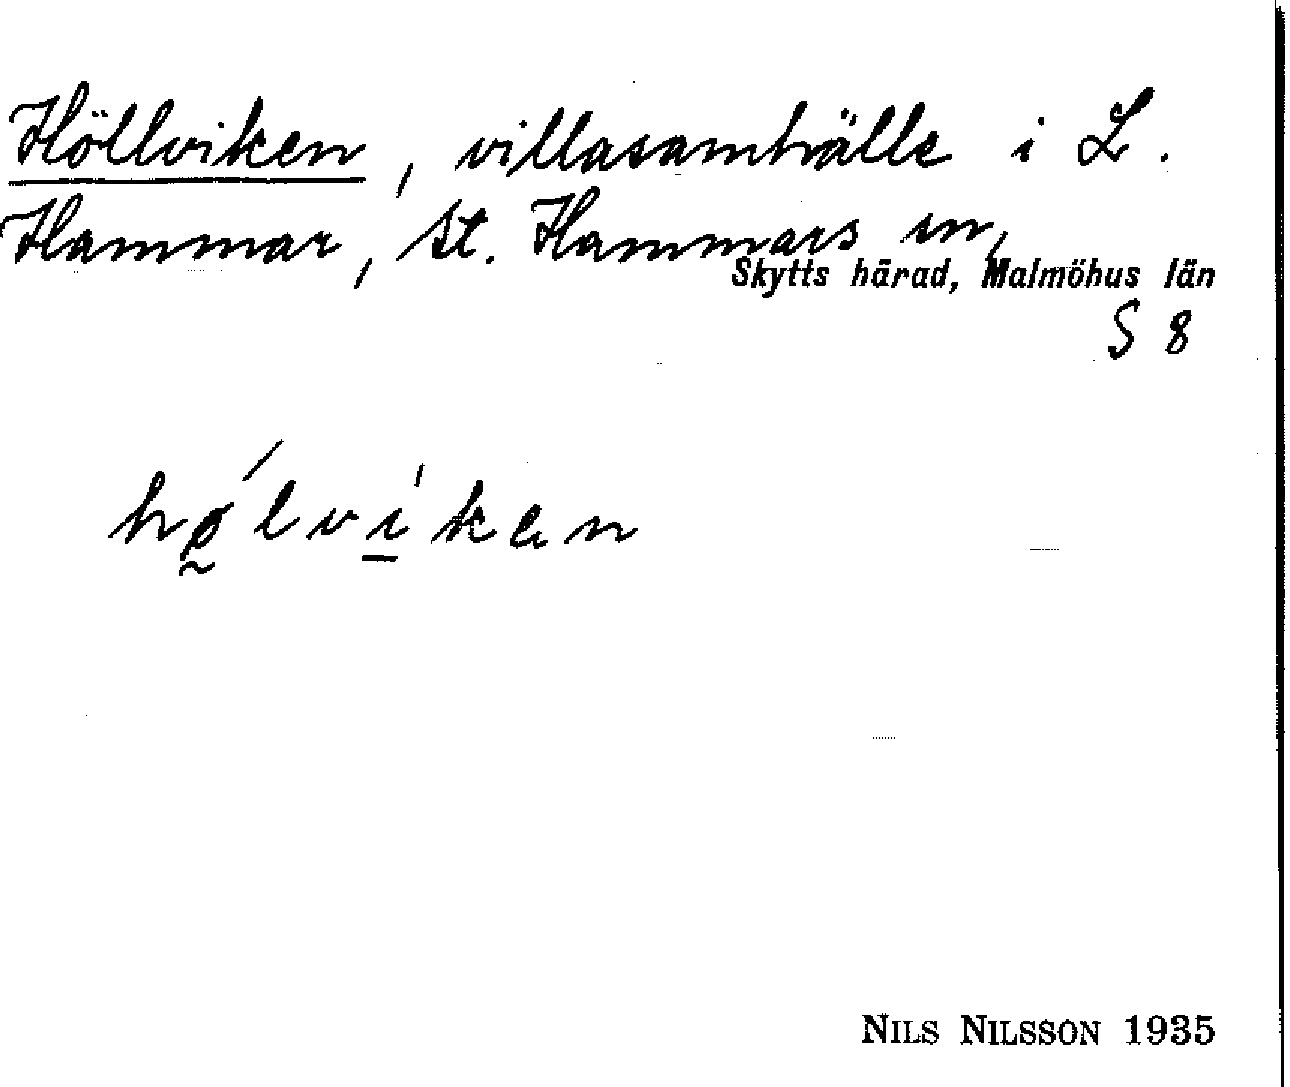 Höllviken, villasamhälle i L.
Hammar, St. Hammars sn,
Skytts härad, Malmöhus län
S 8
hǿ̰lvi̱̍ken
NILS NILSSON 1935